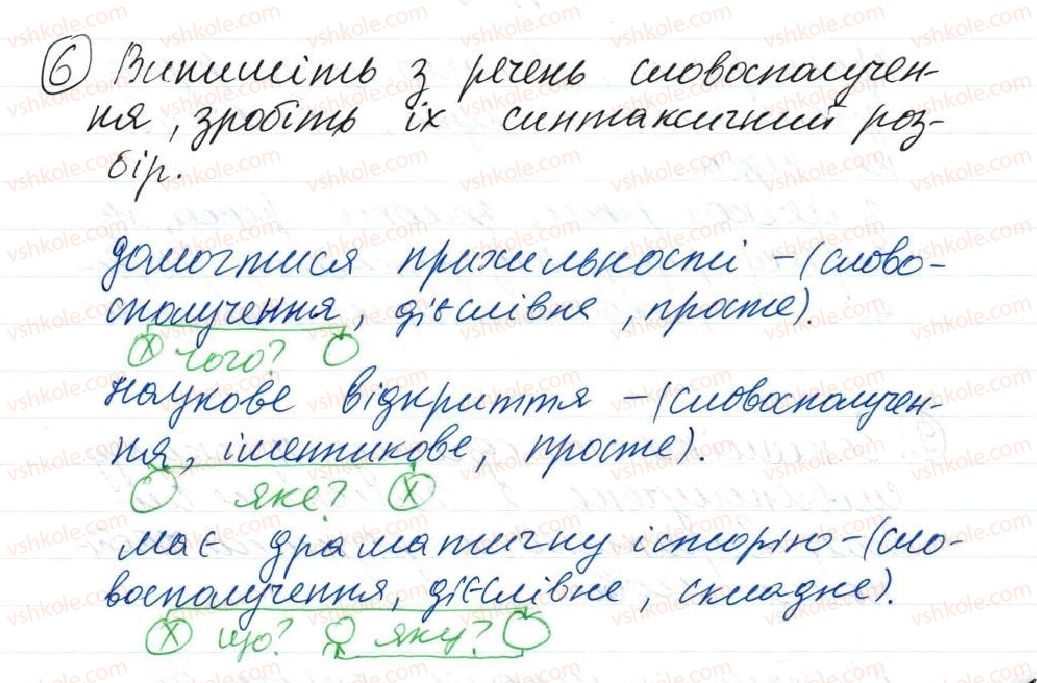 6 Випишіть з речень словосполучен-
ня, зробіть їх синтаксичний роз-
бір.
домогтися прихильності - (слово-
сполучення, дієслівне, просте).
х чого?
наукове відкриття - (словосполучен-
ня, іменникове, просте).
яке? х
має драматичну історію - (сло-
восполучення, дієслівне, складне).
х що? яку?